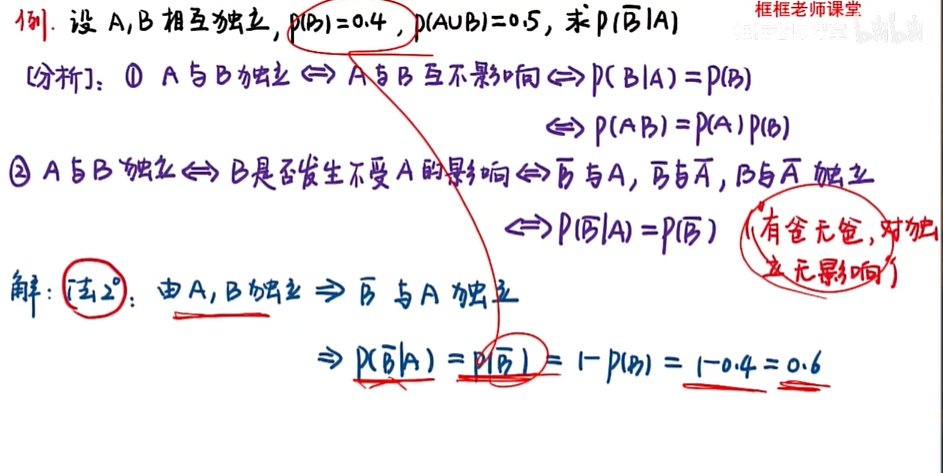 框框老师课堂
例. 设A,B相互独立, P(B)=0.4, P(A∪B)=0.5, 求P(B̅|A)
[分析]: ① A与B独立 ⇔ A与B互不影响 ⇔ P(B|A)=P(B)
⇔ P(AB)=P(A)P(B)
② A与B独立 ⇔ B是否发生不受A的影响 ⇔ B̅与A, B̅与A̅, B与A̅ 独立
⇔ P(B̅|A)=P(B̅) ("有爸无爸, 对独
立无影响")
解: 法2°: 由A,B独立 ⇒ B̅与A独立
⇒ P(B̅|A) = P(B̅) = 1-P(B) = 1-0.4 = 0.6